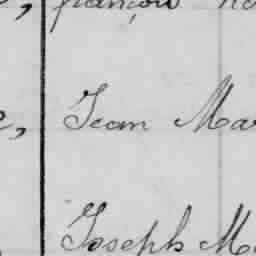 françois
Jean Mar
Joseph M